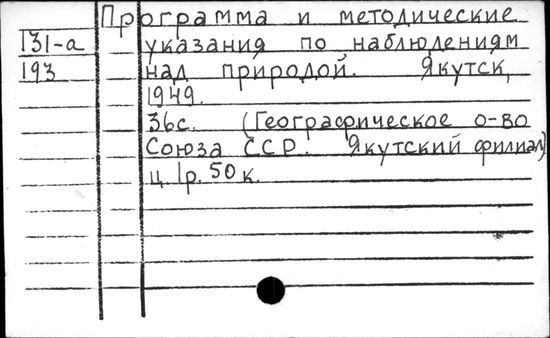 Программа и методические
131-а указания по наблюдениям
193 над природой. Якутск,
1949.
36с. (Географическое о-во
Союза ССР. Якутский филиал)
ц. 1р. 50к.